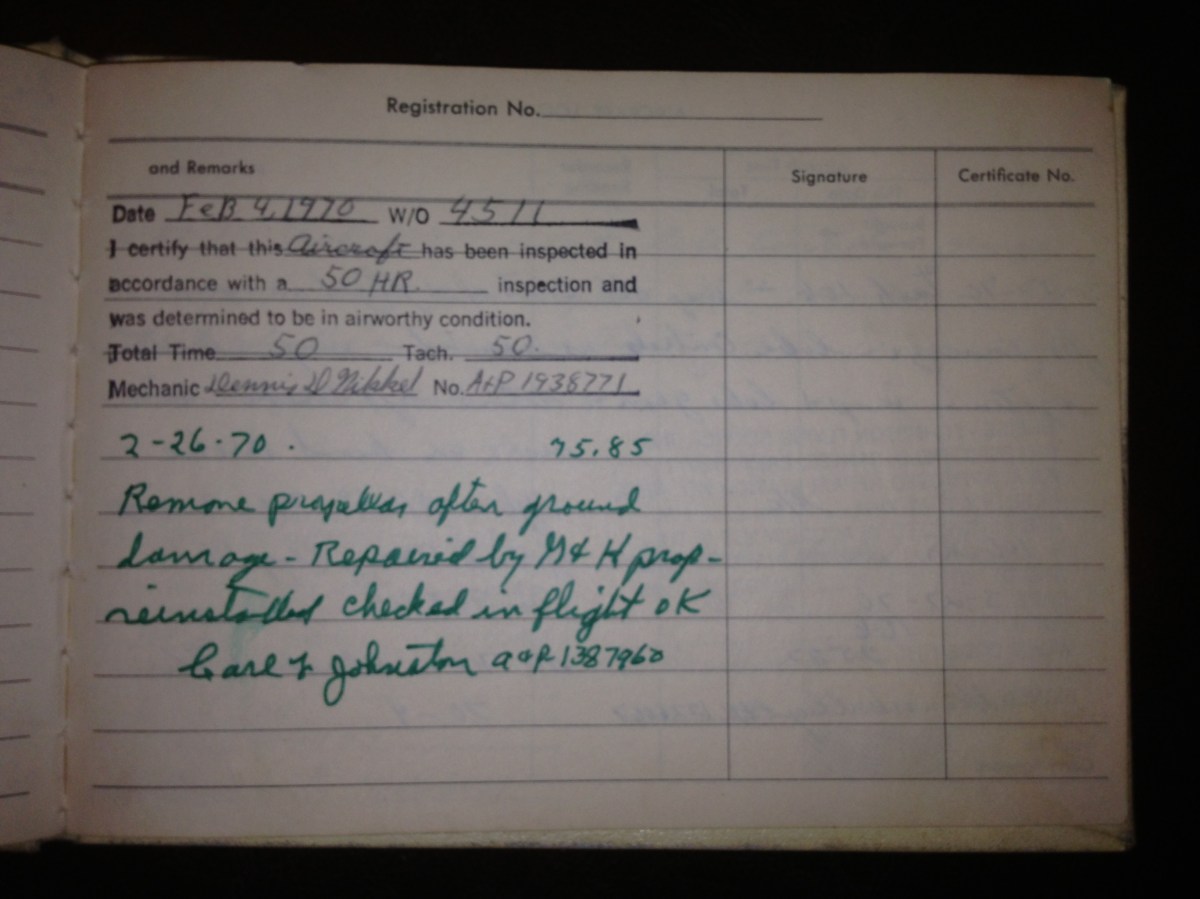 Registration No.
and Remarks Signature Certificate No.
Date FeB 4, 1970 W/O 4511
I certify that this Aircraft has been inspected in
accordance with a 50 HR. inspection and
was determined to be in airworthy condition.
Total Time 50 Tach. 50.
Mechanic Dennis D Nikkel No. A+P 1938771
2-26-70. 75.85
Remone propellar after ground
damage - Repaired by M & H prop-
reinstalled checked in flight OK
Carl F Johnston a&P 1387960